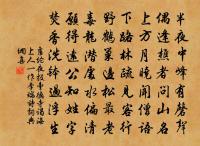 半夜中峰有磬聲
偶逢樵者問山名
上方月曉聞僧語
下路林疏見客行
野鶴巢邊松最老
毒龍潛處水偏清
願得遠公知姓字
焚香洗缽過浮生
盧綸夜投豐德寺謁海
上人一作李端詩詞典
網喜